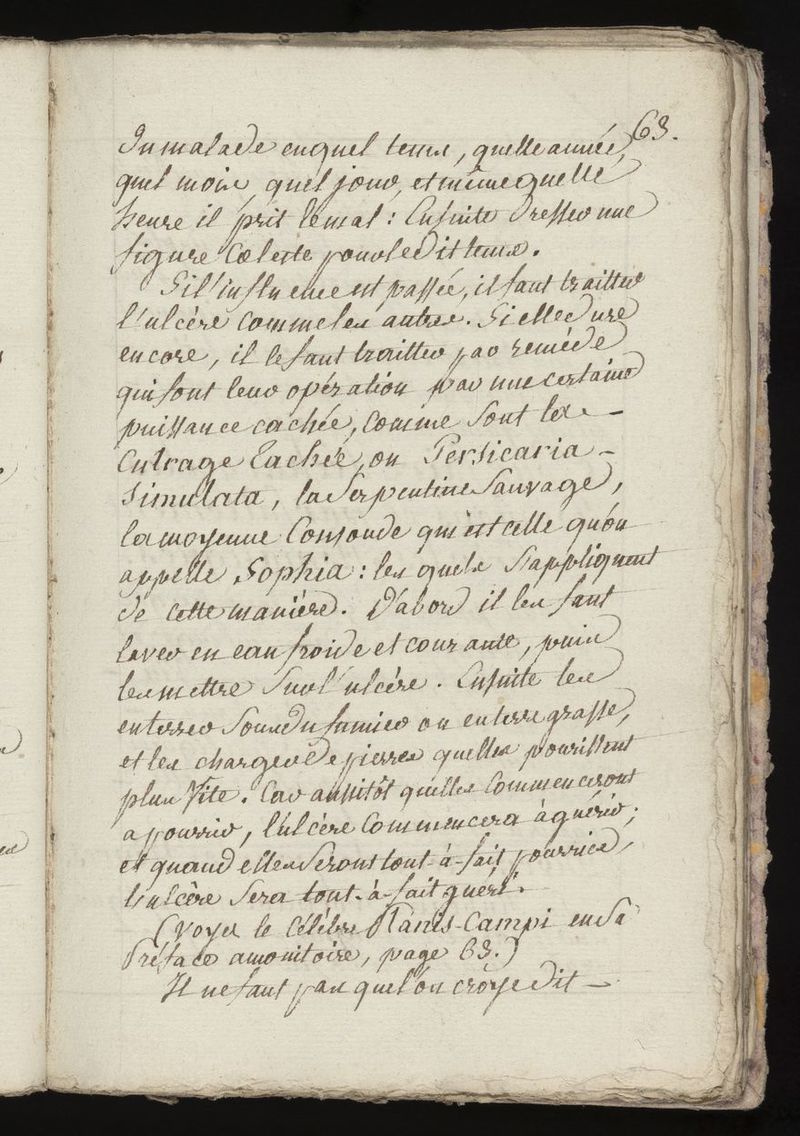 63.
Du malade en quel tems, quelle année,
quel mois, quel jour, et même quelle
heure il prit le mal : Ensuite dresser une
figure Cœleste pour le dit tems.
Si l'influence est passée, il faut traitter
l'ulcére comme les autres. Si elle dure
encore, il le faut traitter par reméde
qui font leur opération par une certaine
puissance cachée, comme sont la –
Culrage Tachée, ou Persicaria –
Simulata, la Serpentine Sauvage,
la moyenne Consoude qui est celle qu'on
appelle Sophia : les quels S'appliquent
de cette maniére. D'abord il les faut
laver en eau froide et courante, puis
les mettre Sur l'ulcére. Ensuite les
enterrer Sous du fumier ou en terre grasse,
et les charger de pierres quelles pourissent
plus Vite. Car aussitôt quelles Commenceront
a pourrir, l'ulcére Commencera à guérir ;
et quand elles Seront tout-à-fait pourries,
l'ulcére Sera tout-à-fait guéri.
(Voyez le Célébre Planis-Campi en Sa
Préface amonitoire, page 63.)
Il ne faut pas quel'on croÿe dit –